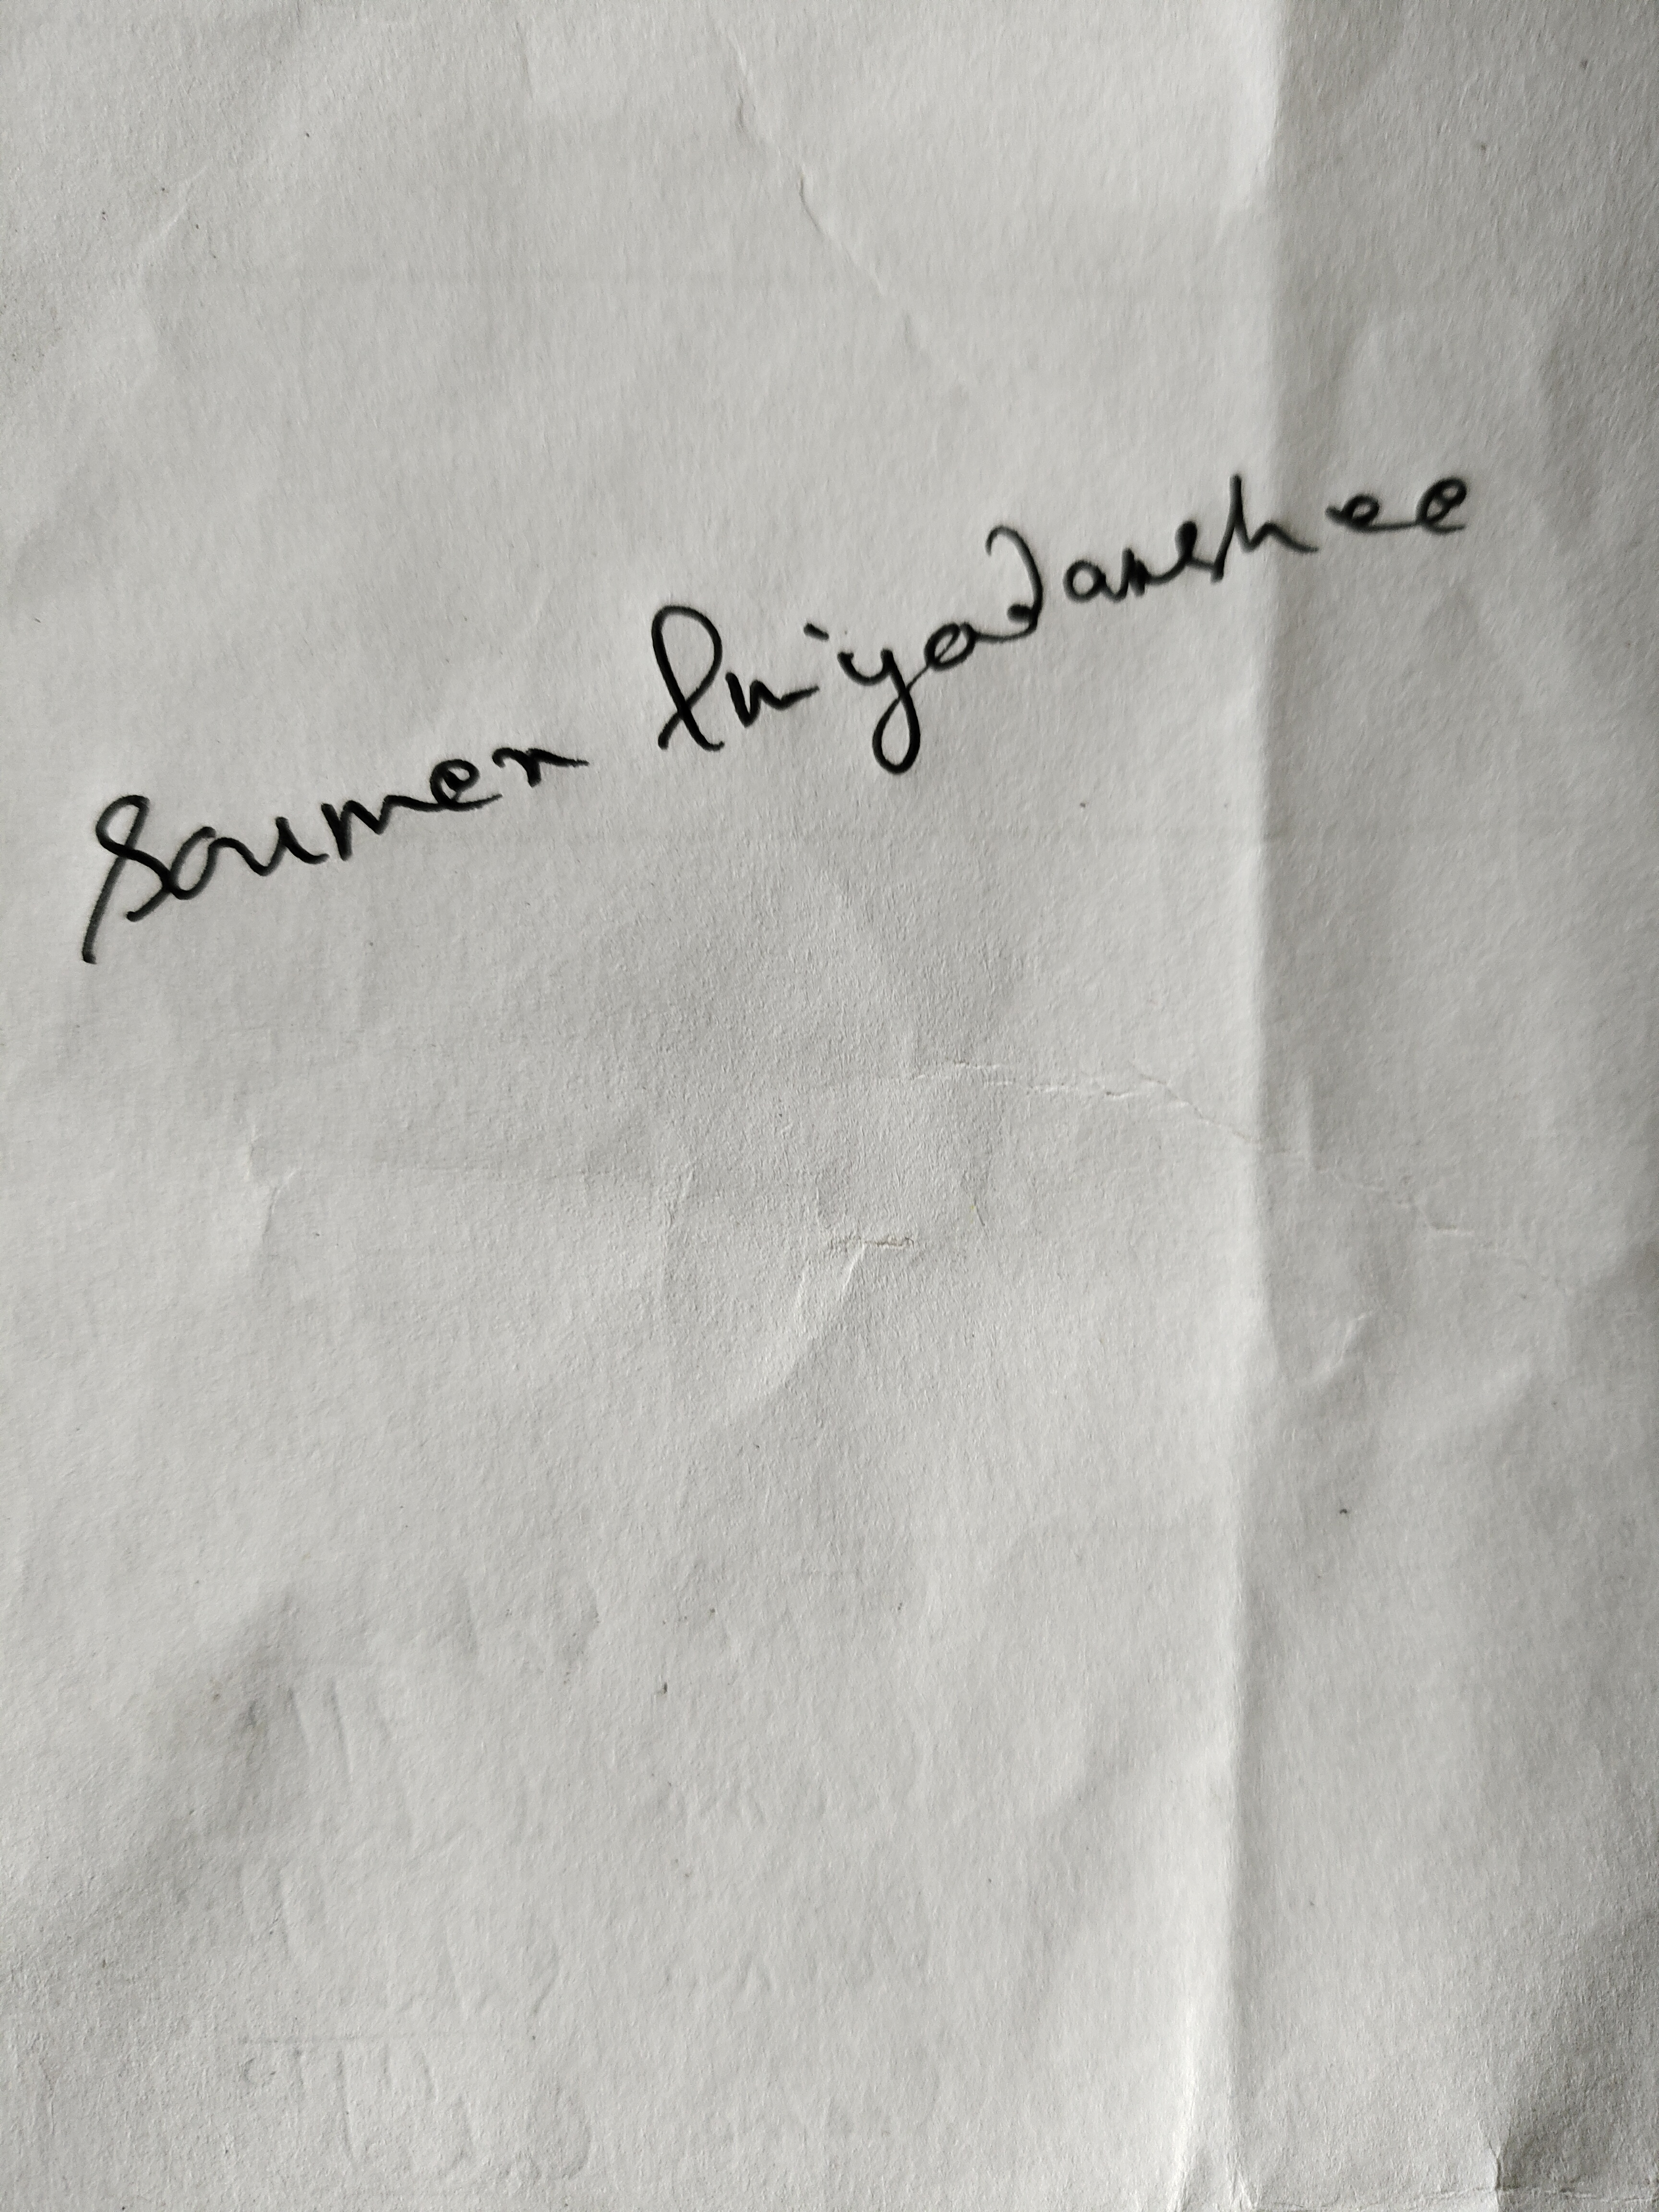 Soumen Priyadarshee